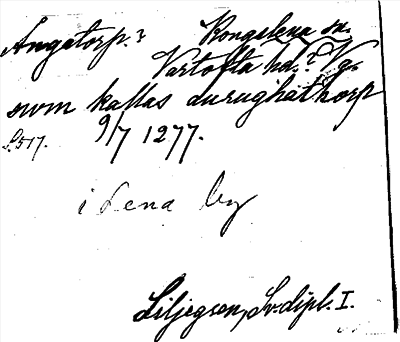 Angatorp? Kongslena sn.
Vartofta hd.? Vg.
swm kallas aurughathorp
S. 517. 9/7 1277.
i Lena by
Liljegren, Sv. dipl. I.